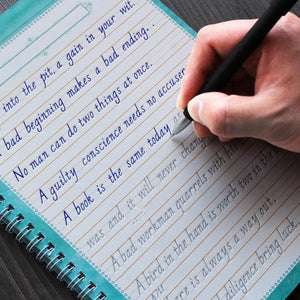 into the pit, a gain in your wit.
bad beginning makes a bad ending...
No man can do two things at once.
A guilty conscience needs no accuser
A book is the same today as
was and it will never chang
A bad workman quarrels with
A bird in the hand is worth two in the
ere is always a way out.
diligence bring luck.